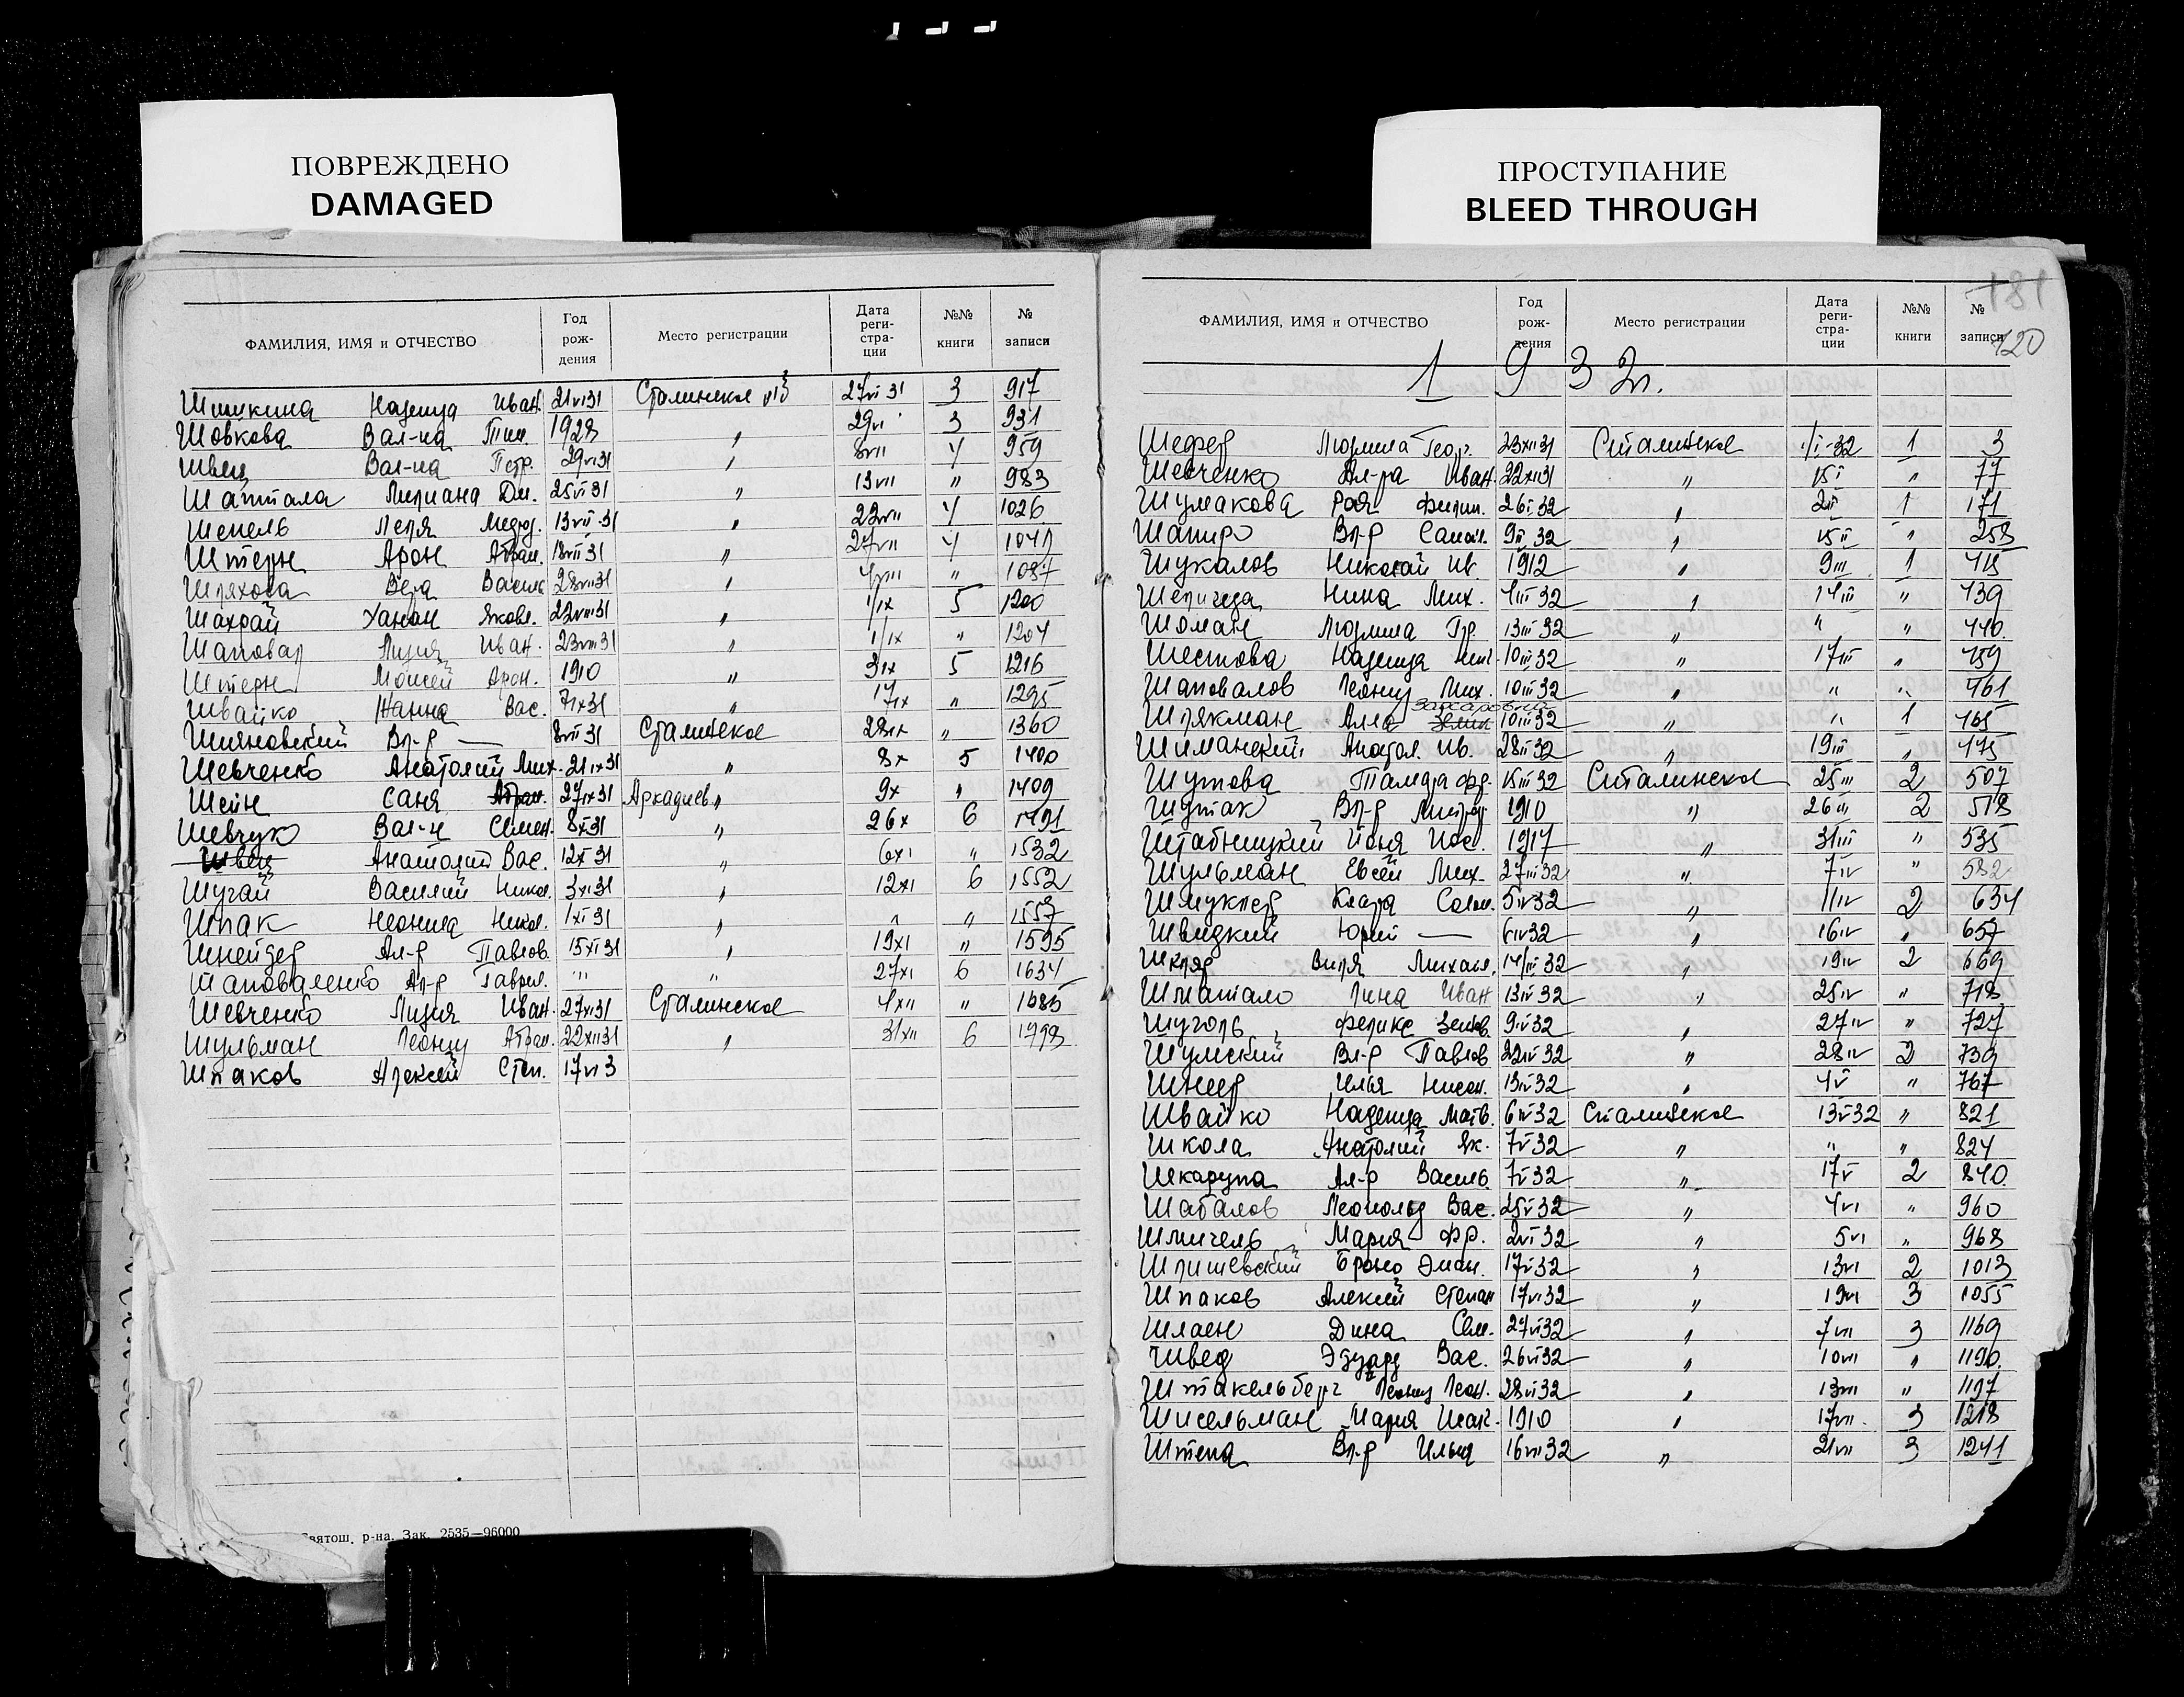 ПОВРЕЖДЕНО
DAMAGED
ПРОСТУПАНИЕ
BLEED THROUGH
ФАМИЛИЯ, ИМЯ и ОТЧЕСТВО Год рож- дения Место регистрации Дата реги- стра- ции №№ книги № записи
Шишкина Надежда Иван. 21 VI 31 Сталинское 27 VI 31 3 917
Шовкова Вал-на Тим. 1928 " 29 VI 3 931
Швец Вал-на Петр. 29 VI 31 " 8 VII 4 959
Шаптала Лилиана Дм. 25 VI 31 " 13 VII " 983
Шепель Леля 13 VII 31 " 22 VII 4 1026
Штерн Арон Абрам. 18 VII 31 " 27 VII 4 1041
Шляхова Вера Василь 28 VII 31 " 4 VIII " 1087
Шахрай Ханан Яковл. 22 VIII 31 " 1/IX 5 1200
Шаповал Лидия Иван. 23 VIII 31 " 1/IX " 1204
Штерн Моисей Арон. 1910 " 3 IX 5 1216
Швайко Жанна Вас. 7 IX 31 " 17 IX " 1295
Шияновский Вл-р — 8 VII 31 Сталинское 28 IX " 1360
Шевченко Анатолий Мих. 21 IX 31 " 8 X 5 1400
Шейн Саня Абрам. 27 IX 31 Аркадиев. " 9 X " 1409
Шевчук Вал-н Семен. 8 X 31 " 26 X 6 1491
Швец Анатолий Вас. 12 X 31 " 6 XI " 1532
Шугай Василий Никол. 3 XI 31 " 12 XI 6 1552
Шпак Неонила Никол. 1 XI 31 " " " 1557
Шнейдер Ал-р Павлов. 15 XI 31 " 19 XI " 1595
Шаповаленко Ал-р Гаврил. " " 27 XI 6 1634
Шевченко Лидия Иван. 27 XI 31 Сталинское 4 XII " 1685
Шульман Леонид Абрам. 22 XII 31 " 31 XII 6 1798
Шпаков Алексей Степ. 17 VI 3
Святош. р-на. Зак. 2535—96000
181
120
ФАМИЛИЯ, ИМЯ и ОТЧЕСТВО Год рож- дения Место регистрации Дата реги- стра- ции №№ книги № записи
1 9 3 2 г.
Шефер Людмила Георг. 23 XII 31 Сталинское 1/I-32 1 3
Шевченко Ал-ра Иван. 22 XII 31 " 15 I " 77
Шумакова Рая Филип. 26 I 32 " 2 II 1 171
Шапиро Вл-р Самойл. 9 II 32 " 15 II " 258
Шукалов Николай Ив. 1912 " 9 III 1 415
Шепигеда Нина Мих. 4 III 32 " 14 III " 439
Шоман Людмила Гр. 13 III 32 " " " 440
Шестова Надежда Ник. 10 III 32 " 17 III " 459
Шаповалов Леонид Мих. 10 III 32 " " " 461
Шлякман Алла Захаровна 10 III 32 " " 1 465
Шиманский Анатол. Ив. 28 II 32 " 19 III " 475
Шутова Тамара Фр. 15 III 32 Сталинское 25 III 2 507
Шутак Вл-р 1910 " 26 III 2 518
Штабницкий Йоня Иос. 1917 " 31 III " 535
Шульман Евсей Мих. 27 III 32 " 7 IV " 582
Шмуклер Клара Солом. 5 IV 32 " 11 IV 2 634
Швидкий Юрий — 6 IV 32 " 16 IV " 657
Шкляр Виля Михаил. 14/III 32 " 19 IV 2 669
Шматало Лина Иван 13 IV 32 " 25 IV " 718
Шуголь Феликс Зельв. 9 IV 32 " 27 IV " 727
Шумский Вл-р Павлов 22 IV 32 " 28 IV 2 739
Шнеер Илья Нисон. 13 IV 32 " 4 V " 767
Швайко Надежда Матв. 6 IV 32 Сталинское 13 V 32 " 821
Школа Анатолий Як. 7 V 32 " " " 824
Шкарупа Ал-р Василь. 7 V 32 " 17 V 2 840
Шабалов Леопольд Вас. 25 V 32 " 4 VI " 960
Шмигель Мария Фр. 2 VI 32 " 5 VI " 968
Шлишевский Броно Эман. 17 V 32 " 13 VI 2 1013
Шпаков Алексей Степан 17 VI 32 " 19 VI 3 1055
Шлаен Дина Сем. 27 VI 32 " 7 VII 3 1169
Швед Эдуард Вас. 26 VI 32 " 10 VII " 1190
Штакельберг Леонид Леон. 28 VI 32 " 13 VII " 1197
Шисельман Мария Исак. 1910 " 17 VII 3 1218
Штепа Вл-р Ильич 16 VII 32 " 21 VII 3 1241